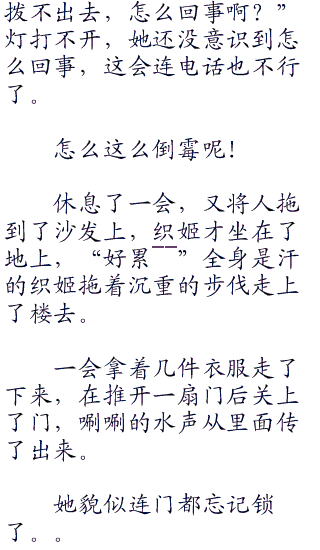 拨不出去，怎么回事啊？”
灯打不开，她还没意识到怎
么回事，这会连电话也不行
了。
怎么这么倒霉呢！
休息了一会，又将人拖
到了沙发上，织姬才坐在了
地上，“好累——”全身是汗
的织姬拖着沉重的步伐走上
了楼去。
一会拿着几件衣服走了
下来，在推开一扇门后关上
了门，唰唰的水声从里面传
了出来。
她貌似连门都忘记锁
了。。